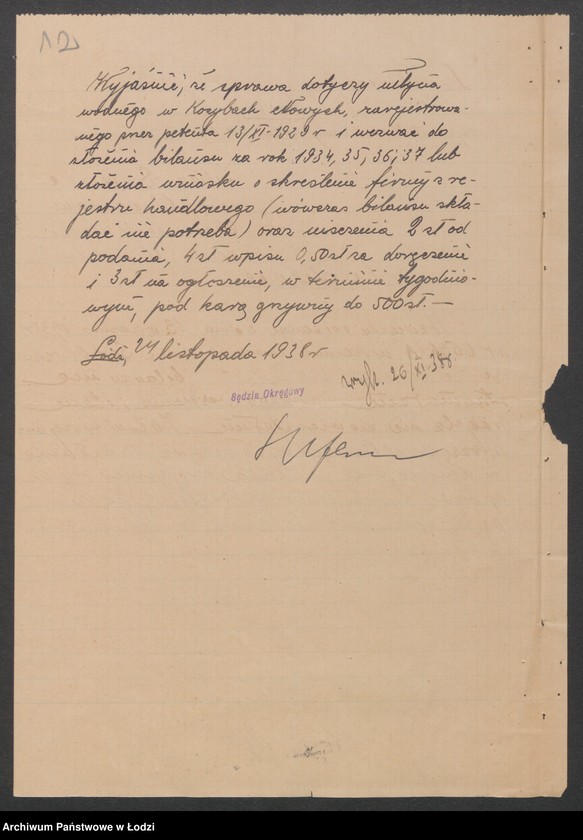 12
Wyjaśnić, że sprawa dotyczy młyna
wodnego w Kozybach ełowych, zarejestrowa-
nego przez petenta 13/XI-1929 r i wezwać do
złożenia bilansu za rok 1934, 35, 36, i 37 lub
złożenia wniosku o skreślenie firmy z re-
jestru handlowego (wówczas bilansu skła-
dać nie potrzeba) oraz uiszczenia 2 zł od
podania, 4 zł wpisu 0,50 zł za doręczenie
i 3 zł na ogłoszenie, w terminie tygodnio-
wym, pod karą grzywny do 500 zł. —
Łódź, 24 listopada 1938 r
wyk. 26/XI 38 r
Sędzia Okręgowy
Archiwum Państwowe w Łodzi